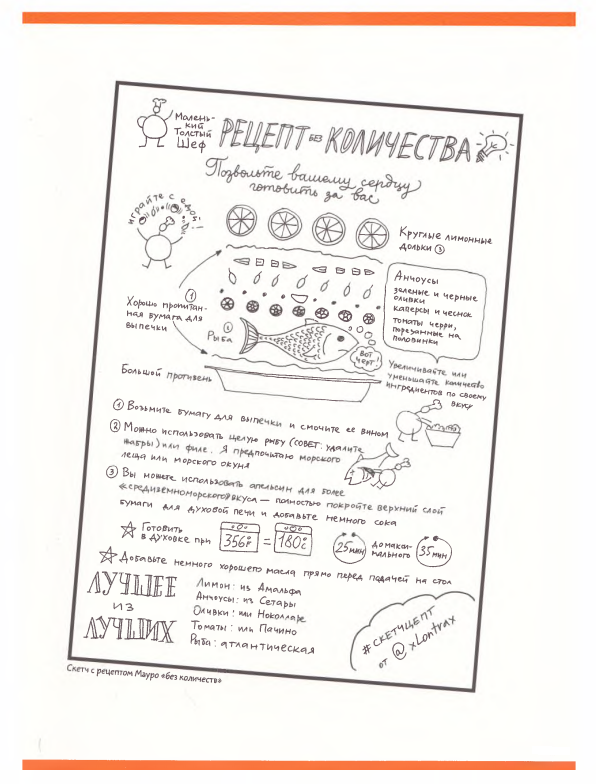 Малень-
кий
Толстый
Шеф
РЕЦЕПТ БЕЗ КОЛИЧЕСТВА
Позвольте вашему сердцу
готовить за вас
играйте с едой!
Круглые лимонные
дольки ③
Анчоусы
зеленые и черные
оливки
каперсы и чеснок
томаты черри,
порезанные на
половинки
①
Хорошо пропитан-
ная бумага для
выпечки
Рыба
Вот
черт!
Увеличивайте или
уменьшайте количество
ингредиентов по своему
вкусу
Большой противень
① Возьмите бумагу для выпечки и смочите её вином
② Можно использовать целую рыбу (СОВЕТ: удалите
жабры) или филе. Я предпочитаю морского
леща или морского окуня
③ Вы можете использовать апельсин для более
«средиземноморского» вкуса — полностью покройте верхний слой
бумаги для духовой печи и добавьте немного сока
Готовить
в духовке при 356°F = 180°C 25 мин 35 мин
Добавьте немного хорошего масла прямо перед подачей на стол
ЛУЧШЕЕ
ИЗ
ЛУЧШИХ
Лимон: из Амальфи
Анчоусы: из Сетары
Оливки: или Ноколларе
Томаты: или Пачино
Рыба: атлантическая
#СКЕТЧЦЕПТ
от @xLontrax
Скетч с рецептом Мауро «без количеств»